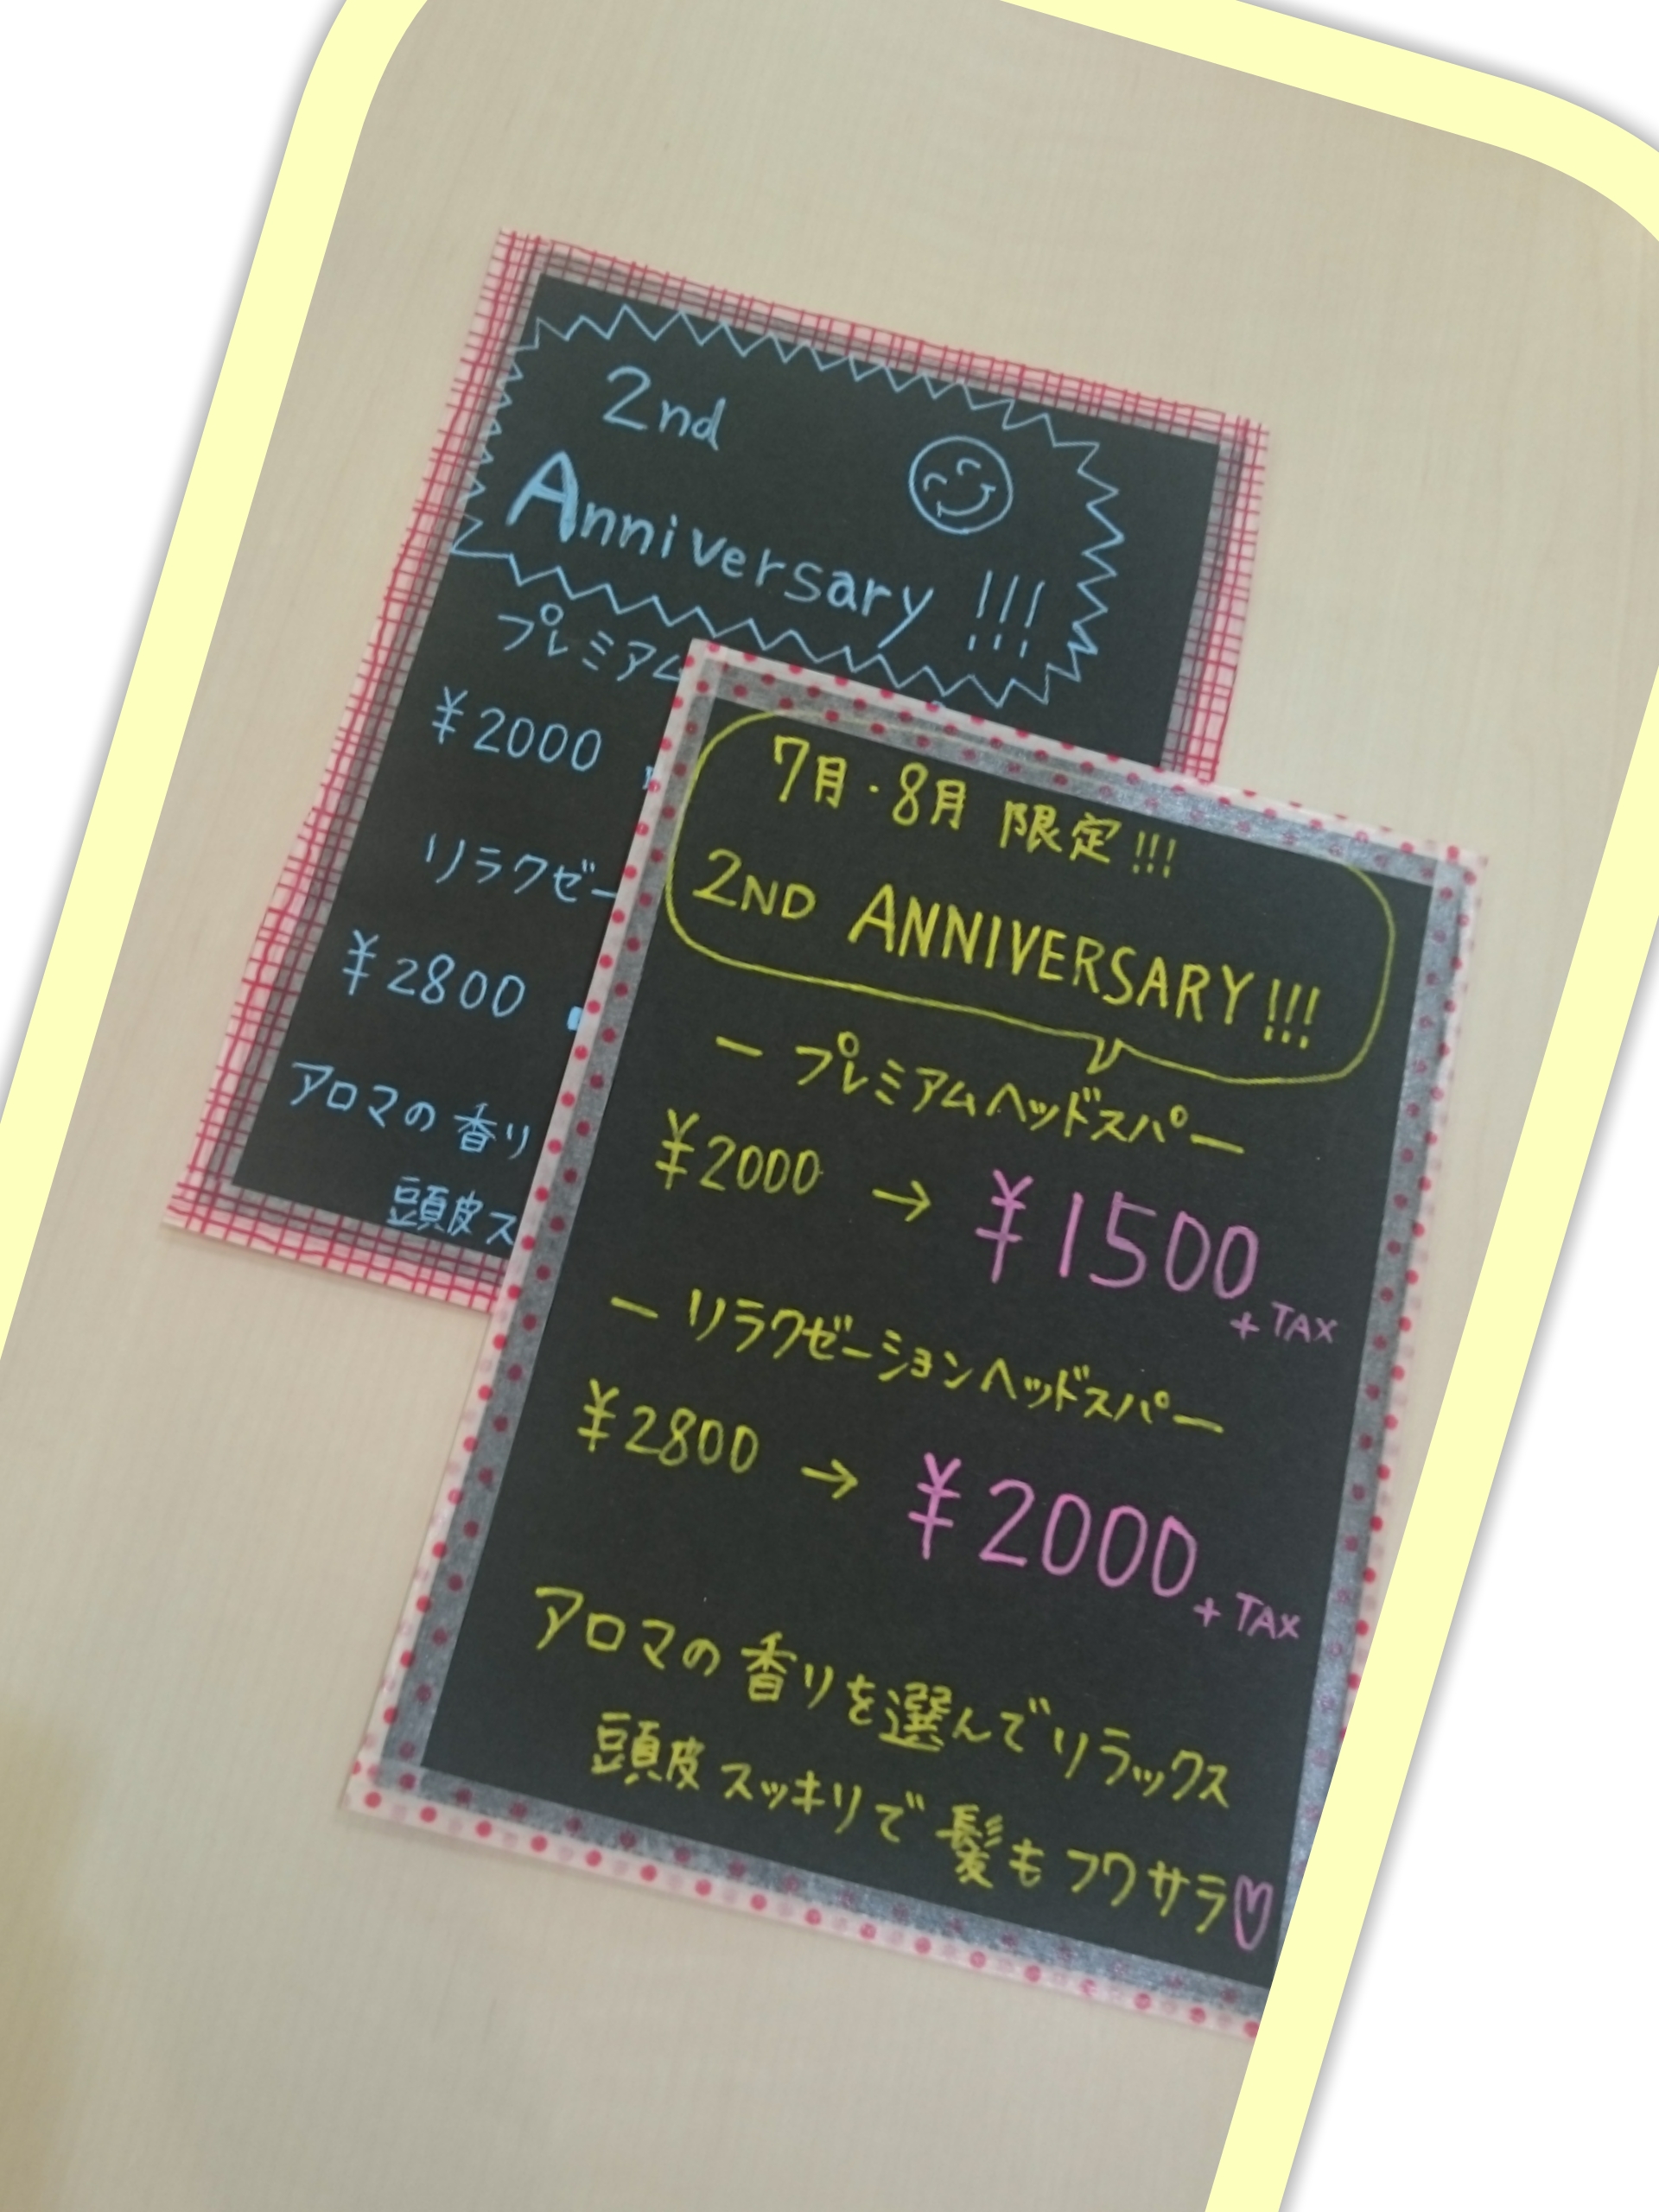 2nd
Anniversary !!!
プレミアム
¥2000
リラクゼー
¥2800
アロマの香り
頭皮ス
7月・8月 限定!!!
2ND ANNIVERSARY!!!
ー プレミアムヘッドスパ ー
¥2000 → ¥1500
+ TAX
ー リラクゼーションヘッドスパ ー
¥2800 → ¥2000
+ TAX
アロマの香りを選んでリラックス
頭皮スッキリで髪もフワサラ♡